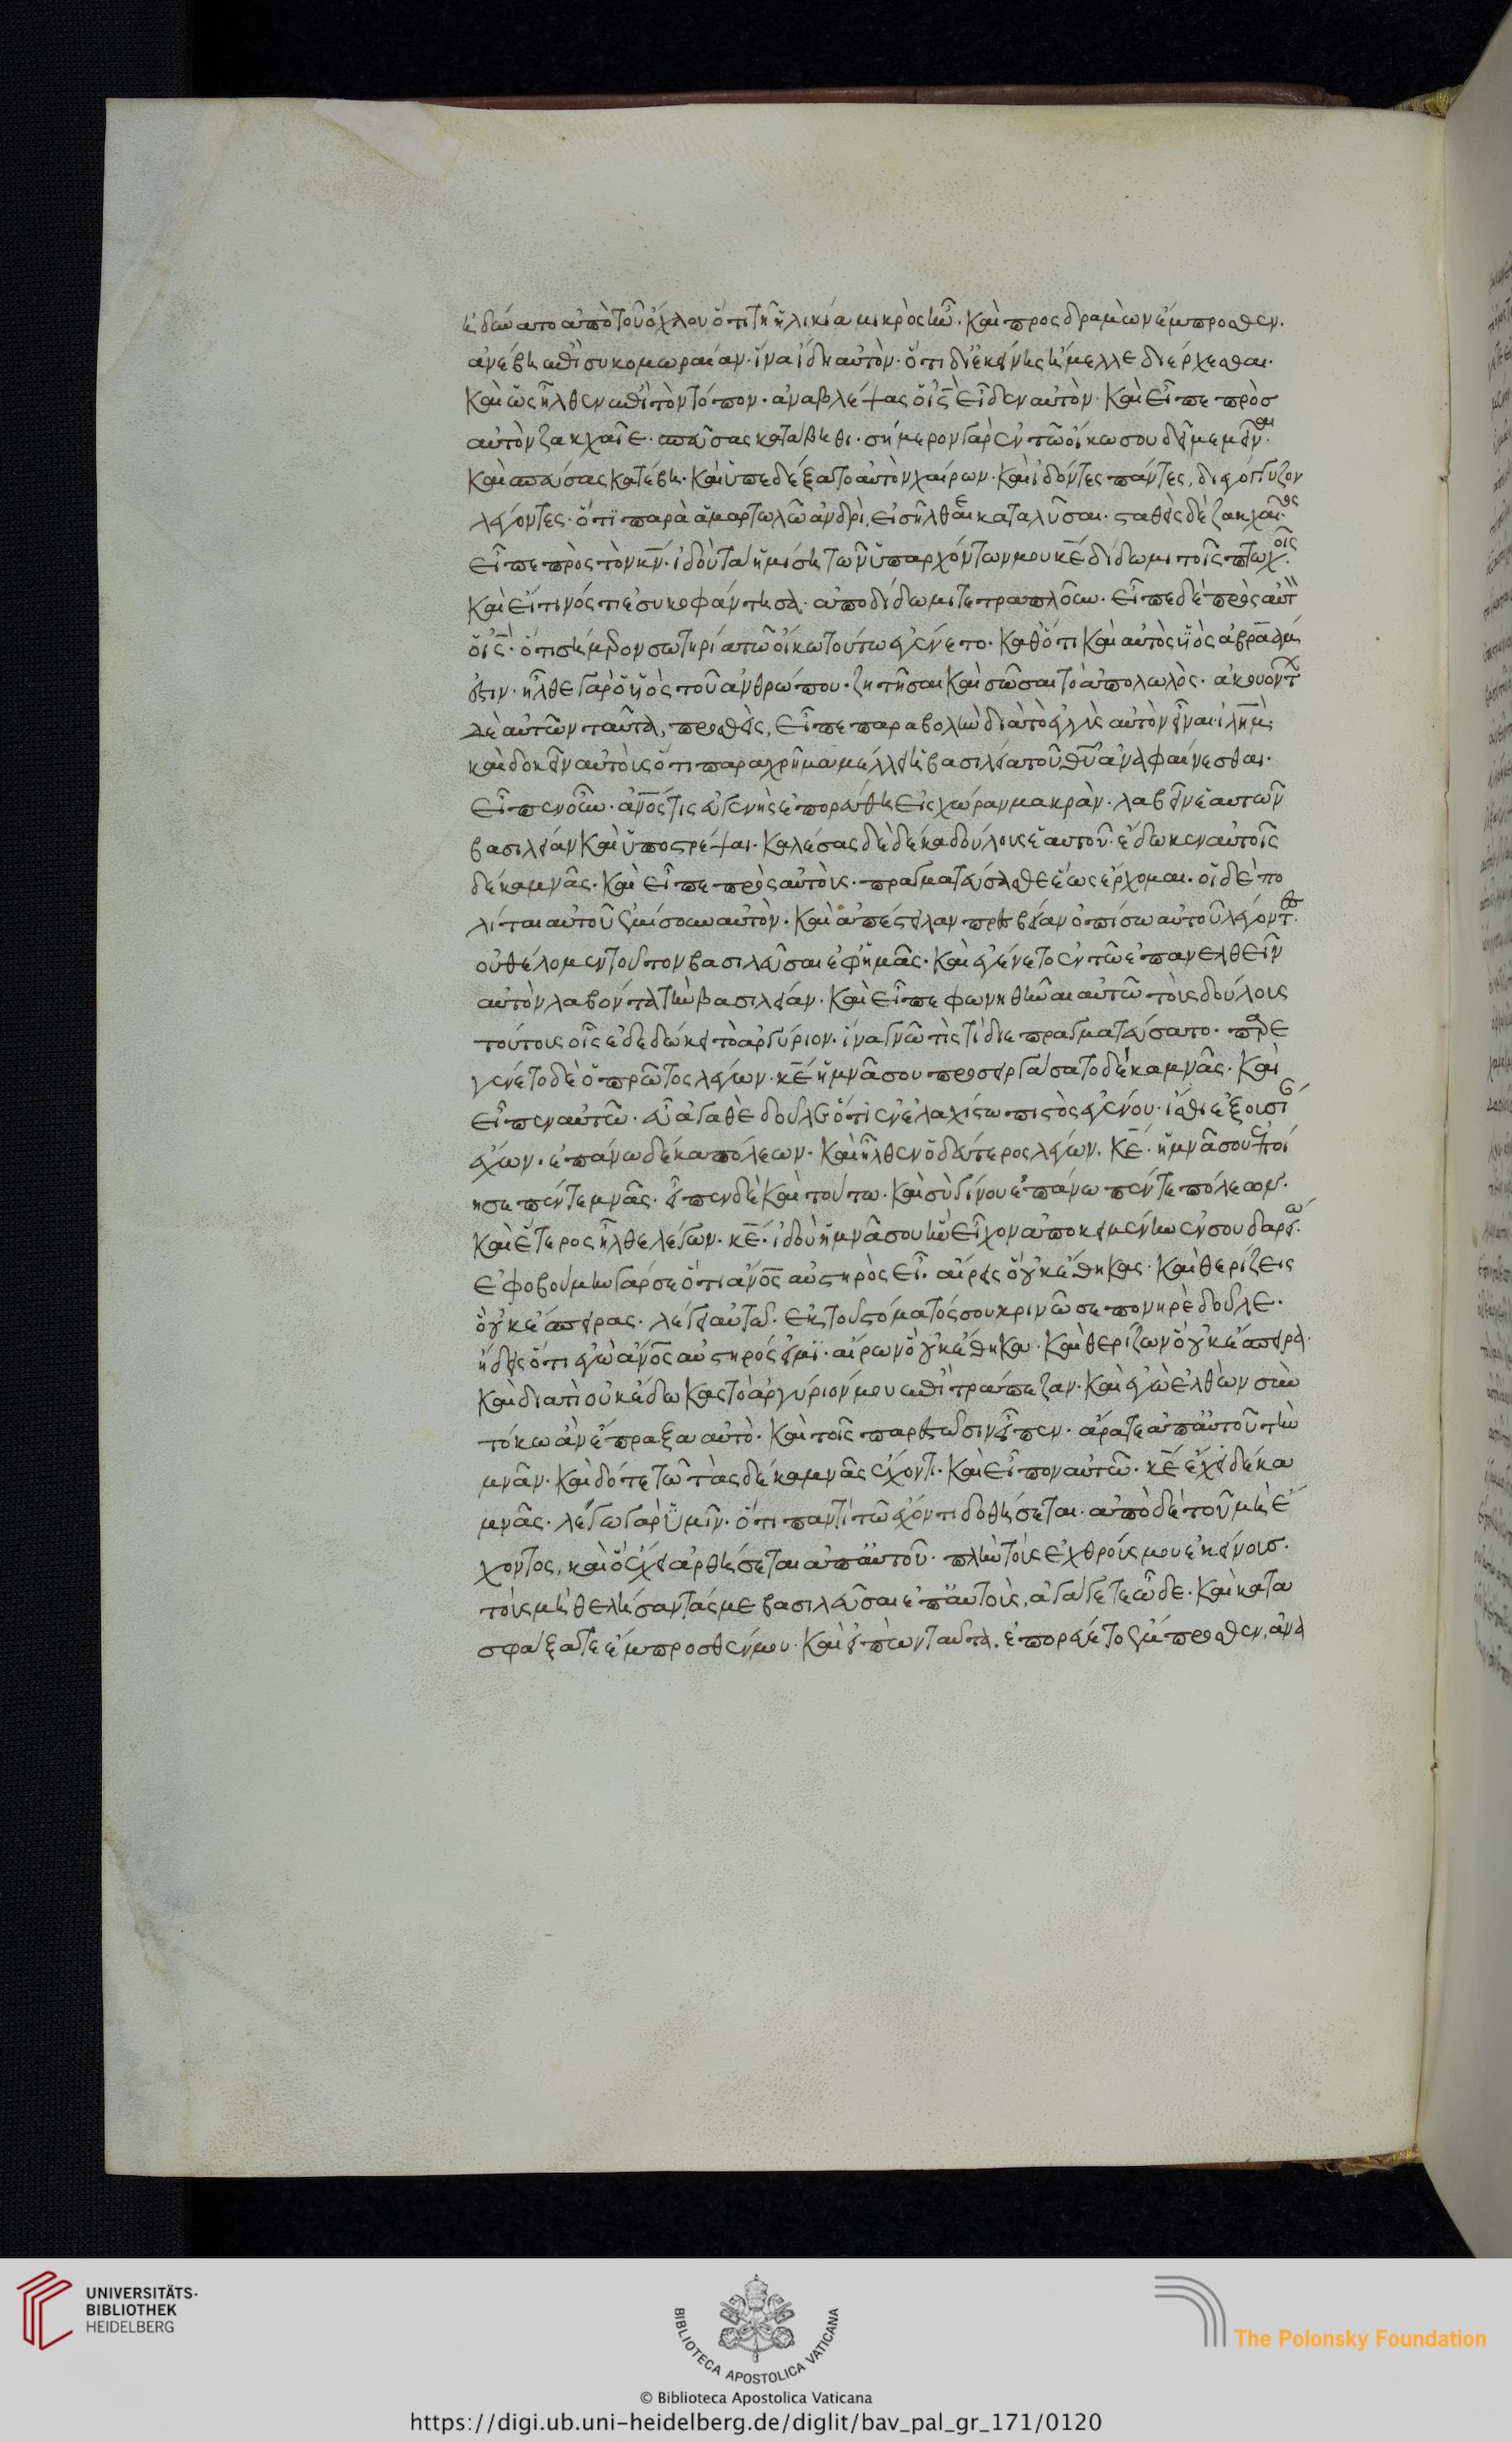 ἠδύνατο ἀπὸ τοῦ ὄχλου ὅτι τῆ ἡλικία μικρὸς ἦν. καὶ προσδραμὼν ἔμπροσθεν.
ἀνέβη ἐπὶ συκομωραίαν. ἵνα ἴδη αὐτὸν. ὅτι δι ἐκείνης ἤμελλε διέρχεσθαι.
καὶ ὡς ἦλθεν ἐπὶ τὸν τόπον. ἀναβλέψας ὁ ις εἶδεν αὐτὸν. καὶ εἶπε πρὸσ
αὐτὸν ζακχαῖε. σπεῦσας κατάβηθι. σήμερον γὰρ ἐν τῶ οἴκω σου δεῖ με μεῖν.
καὶ σπεύσας κατέβη. καὶ ὑπεδέξατο αὐτὸν χαίρων. καὶ ἰδόντες πάντες, διεγόγγυζον
λέγοντες. ὅτι παρὰ ἁμαρτωλῶ ἀνδρὶ, εἰσῆλθε καταλῦσαι. σταθεὶς δὲ ζακχαῖος
εἶπε πρὸς τὸν κν. ἰδοὺ τὰ ἡμίση τῶν ὑπαρχόντων μου κε δίδωμι τοῖς πτωχοῖς.
καὶ εἴ τινός τι ἐσυκοφάντησα. ἀποδίδωμι τετραπλοῦν. εἶπε δὲ πρὸς αὐτ
ὁ ις. ὅτι σήμερον σωτηρία τῶ οἴκω τούτω ἐγένετο. καθ ὅτι καὶ αὐτὸς υἱὸς ἀβραάμ
ἐστιν. ἦλθε γὰρ ὁ υἱὸς τοῦ ἀνθρώπου. ζητῆσαι καὶ σῶσαι τὸ ἀπολωλὸς. ἀκουόντ
δὲ αὐτῶν ταῦτα, προσθεὶς, εἶπε παραβολὴν διὰ τὸ ἐγγὺς αὐτὸν εἶναι ιλημ.
καὶ δοκεῖν αὐτοὺς ὅτι παραχρῆμα μέλλει ἡ βασιλεία τοῦ θυ ἀναφαίνεσθαι.
εἶπεν οὖν. ανος τις εὐγενὴς ἐπορεύθη εἰς χώραν μακρὰν. λαβεῖν ἑαυτῶν
βασιλείαν καὶ ὑποστρέψαι. καλέσας δὲ δέκα δούλους ἑαυτοῦ. ἔδωκεν αὐτοῖς
δέκα μνᾶς. καὶ εἶπε πρὸς αὐτοὺς. πραγματεύσασθε ἕως ἔρχομαι. οἱ δὲ πο
λίται αὐτοῦ ἐμίσουν αὐτὸν. καὶ ἀπέστειλαν πρεσβείαν ὀπίσω αὐτοῦ λέγοντ.
οὐ θέλομεν τοῦτον βασιλεῦσαι ἐφ ἡμᾶς. καὶ ἐγένετο ἐν τῶ ἐπανελθεῖν
αὐτὸν λαβόντα τὴν βασιλείαν. καὶ εἶπε φωνηθῆναι αὐτῶ τοὺς δούλους
τούτους οἷς ἐδεδώκει τὸ ἀργύριον. ἵνα γνῶ τὶς τί διεπραγματεύσατο. παρε
γένετο δὲ ὁ πρῶτος λέγων. κε ἡ μνᾶ σου προσειργάσατο δέκα μνᾶς. καὶ
εἶπεν αὐτῶ. εὖ ἀγαθὲ δοῦλε ὅτι ἐν ἐλαχίστω πιστὸς ἐγένου. ἴσθι ἐξουσί
ἔχων. ἐπάνω δέκα πόλεων. καὶ ἦλθεν ὁ δεύτερος λέγων. κε. ἡ μνᾶ σου ἐποί
ησε πέντε μνᾶς. εἶπεν δὲ καὶ τούτω. καὶ σὺ γίνου ἐπάνω πέντε πόλεων.
καὶ ἕτερος ἦλθε λέγων. κε. ἰδοὺ ἡ μνᾶ σου ἣν εἶχον ἀποκειμένην ἐν σουδαρίω.
ἐφοβούμην γάρ σε ὅτι ανος αὐστηρὸς εἶ. αἴρεις ὃ οὐκ ἔθηκας. καὶ θερίζεις
ὃ οὐκ ἔσπειρας. λέγει αὐτῶ. ἐκ τοῦ στόματός σου κρινῶ σε πονηρὲ δοῦλε.
ἤδεις ὅτι ἐγὼ ανος αὐστηρός εἰμι. αἴρων ὃ οὐκ ἔθηκα. καὶ θερίζων ὃ οὐκ ἔσπειρα.
καὶ διατὶ οὐκ ἔδωκας τὸ ἀργύριόν μου ἐπὶ τράπεζαν. καὶ ἐγὼ ἐλθὼν σὺν
τόκω ἂν ἔπραξα αὐτὸ. καὶ τοῖς παρεστῶσιν εἶπεν. ἄρατε ἀπ αὐτοῦ τὴν
μνᾶν. καὶ δότε τῶ τὰς δέκα μνᾶς ἔχοντι. καὶ εἶπον αὐτῶ. κε ἔχει δέκα
μνᾶς. λέγω γὰρ ὑμῖν. ὅτι παντὶ τῶ ἔχοντι δοθήσεται. ἀπὸ δὲ τοῦ μὴ ἔ
χοντος, καὶ ὃ ἔχει ἀρθήσεται ἀπ αὐτοῦ. πλὴν τοὺς ἐχθρούς μου ἐκείνουσ.
τοὺς μὴ θελήσαντάς με βασιλεῦσαι ἐπ αὐτοὺς, ἀγάγετε ὧδε. καὶ κατα
σφάξατε ἔμπροσθέν μου. καὶ εἰπὼν ταῦτα, ἐπορεύετο ἔμπροσθεν, ἀνα
UNIVERSITÄTS-
BIBLIOTHEK
HEIDELBERG
BIBLIOTECA APOSTOLICA VATICANA
The Polonsky Foundation
© Biblioteca Apostolica Vaticana
https://digi.ub.uni-heidelberg.de/diglit/bav_pal_gr_171/0120